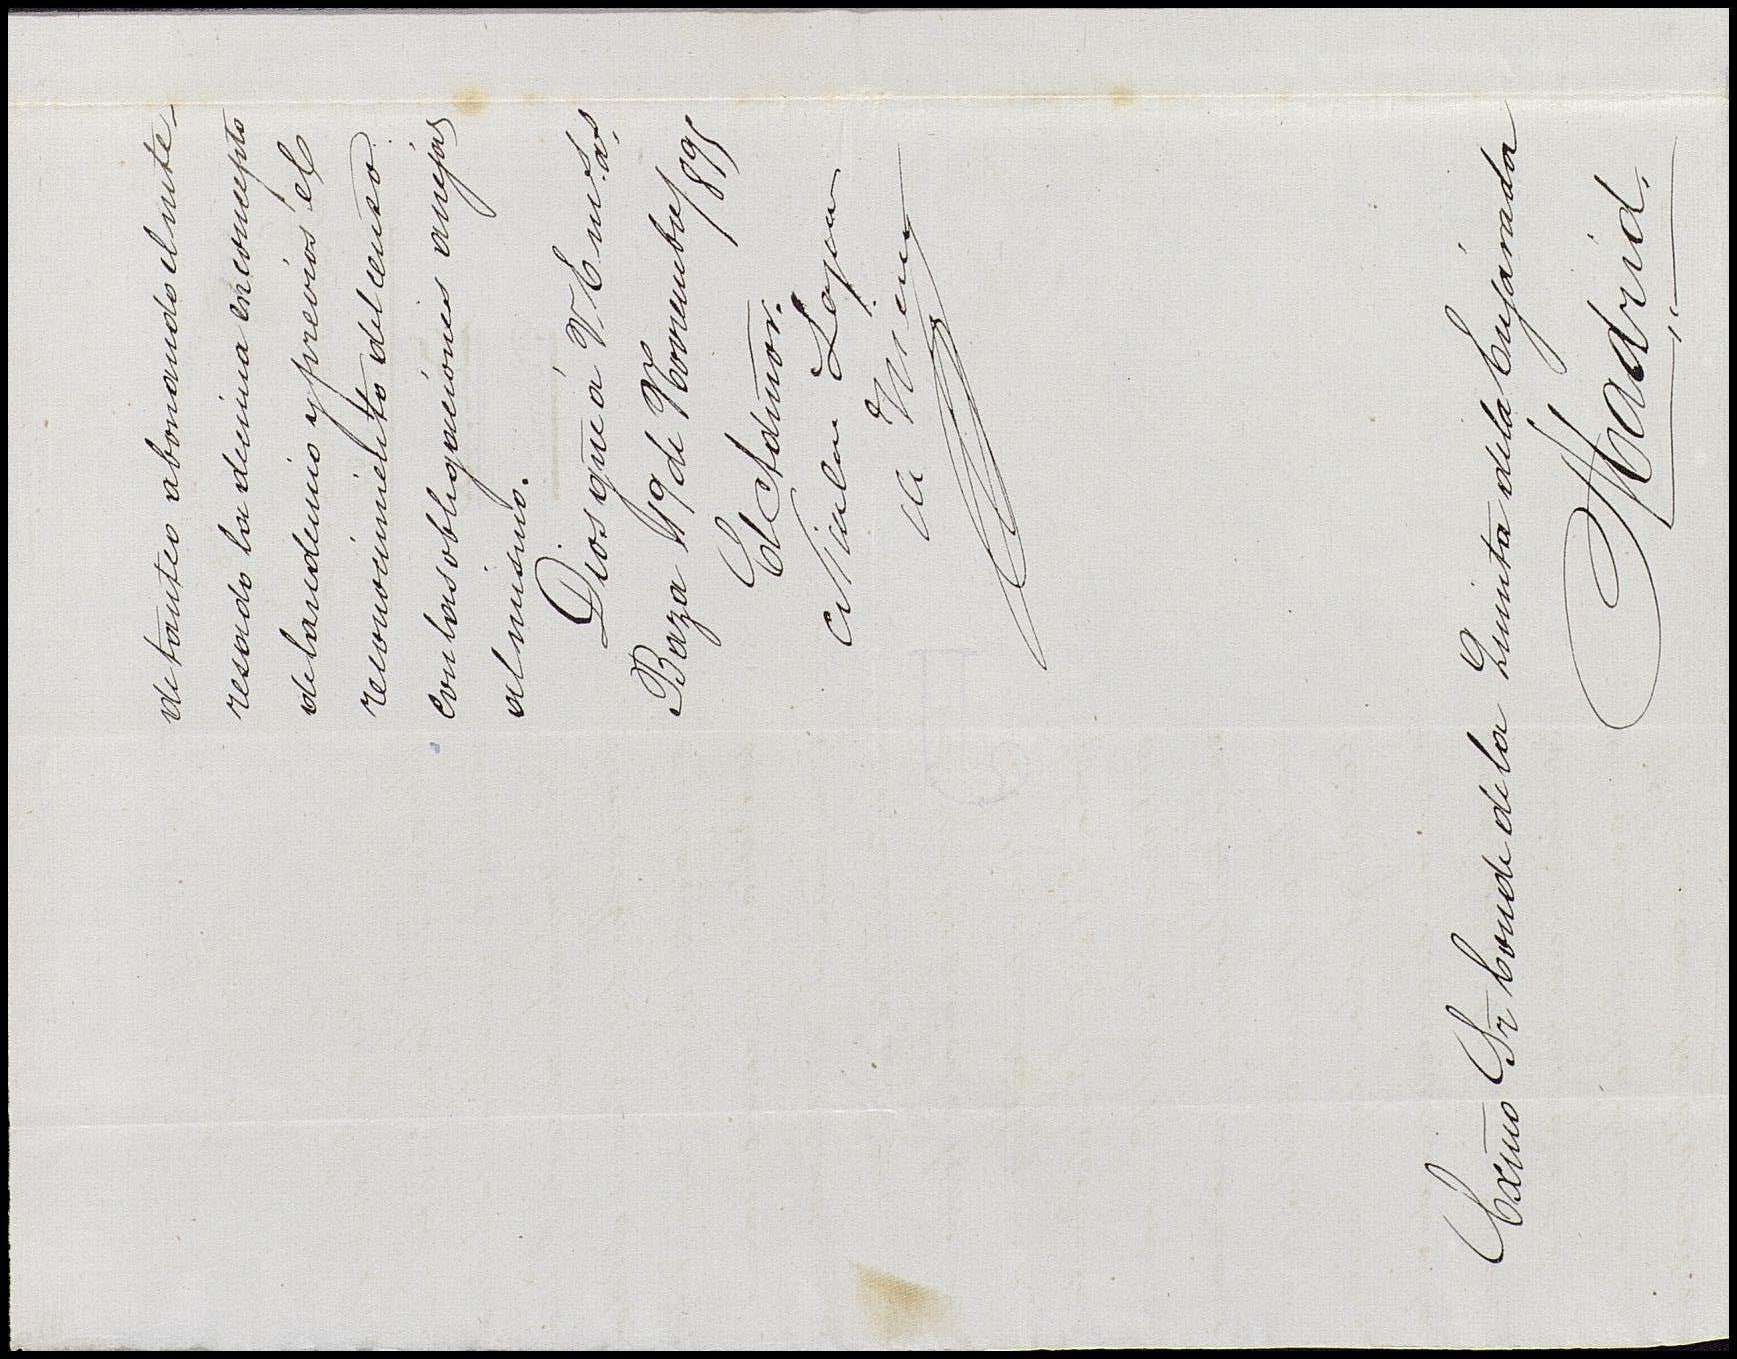 de tanteo abonando el inte-
resado la decima en concepto
de laudemio y previos el
reconocimiento del censo
con las obligaciones anejas
al mismo.
Dios gũe á V. E. m.s a.s
Baza 19 de Noviembre/895
El Admõr.
Lopez
Exmo Sr Conde de la Quinta de la Enjarada
Madrid.